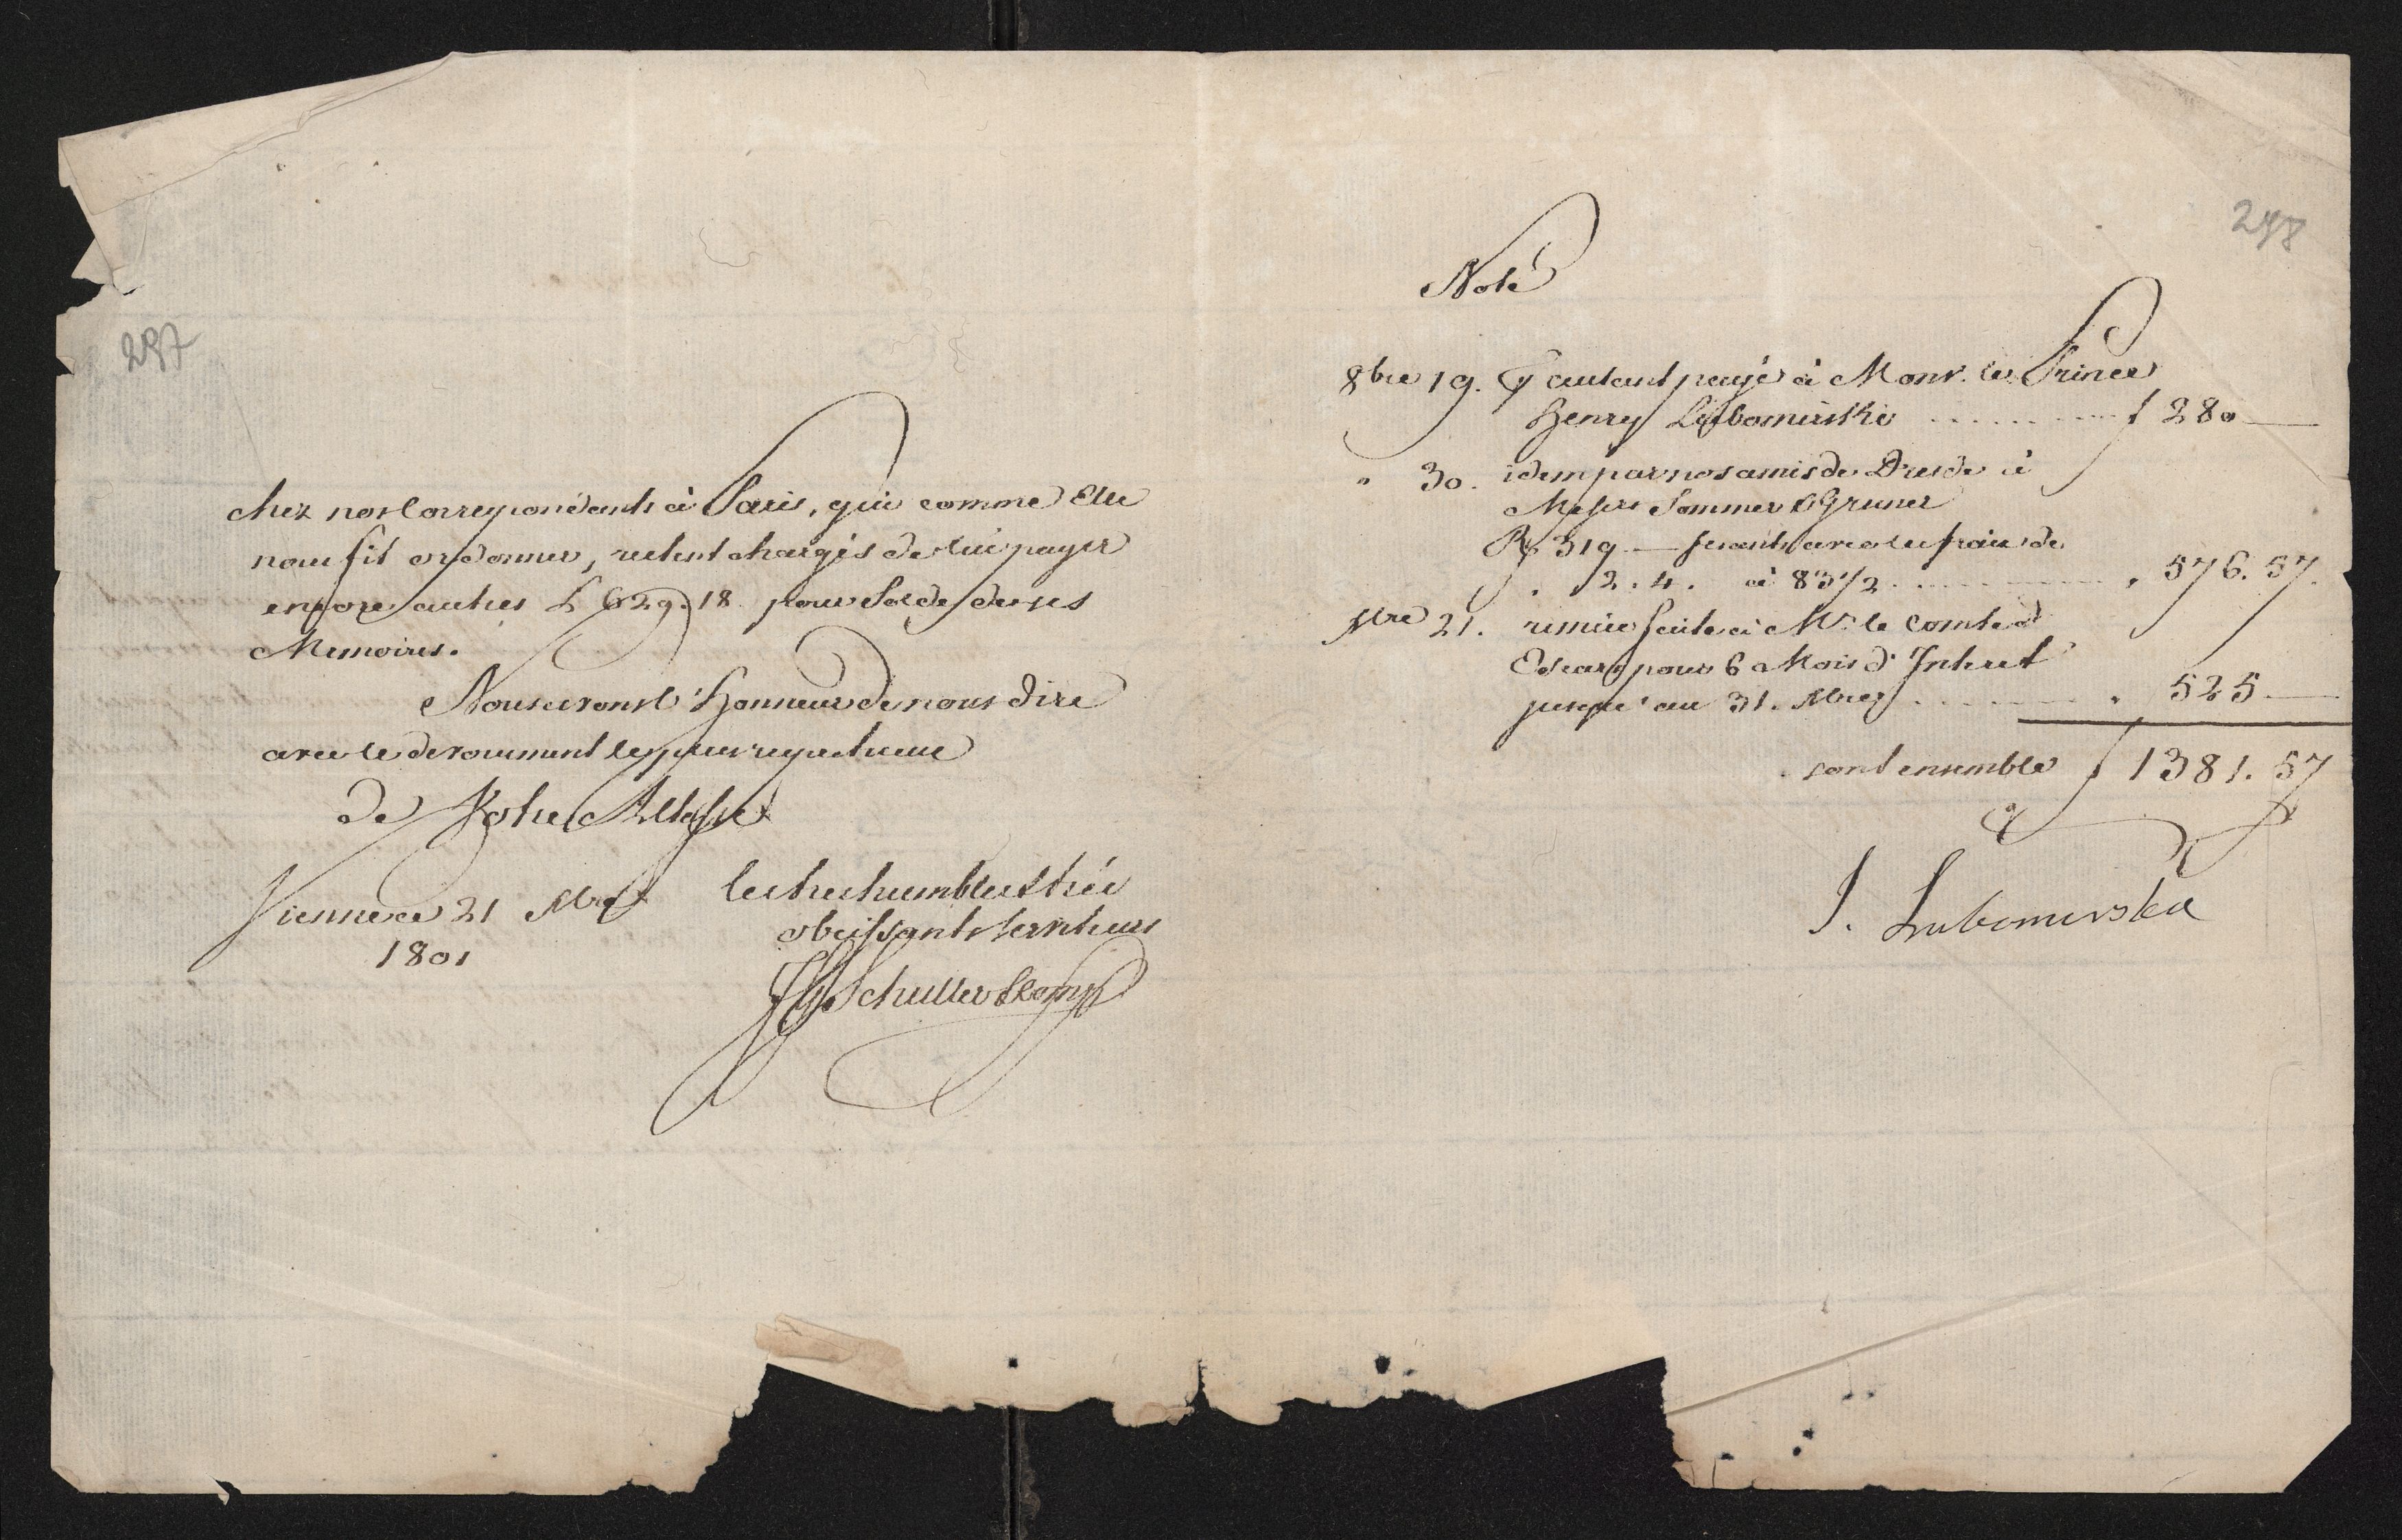 297
chez nos Correspondents à Paris, qui comme Elle
nous fit ordonner, restent chargés de lui payer
encore autres L 629.18 pour Solde de ses
Memoires.
Nous avons l'Honneur de nous dire
avec le devouement le plus respectueux
de Votre Altesse
Vienne ce 21 Nbre
1801
les tres humbles & très
obeissants serviteurs
J G Schuller & Comp
298
Note
8bre 19. autant payé à Monsr. le Prince
Henry Lubomirski . . . . . . . . f 280 —
" 30. idem par nos amis de Dresde à
Messrs Sommer & Gruner
R 319 — fesants avec les frais de
" 2.4. à 83 1/2 . . . . . . . . " 576.57.
Nbre 21. remise faite à Mr. le Comte d'
Escars pour 6 Mois d'Interet
jusqu'au 31. Xbre . . . . . . " 525 —
sont ensemble f 1381.57
J. Lubomirska